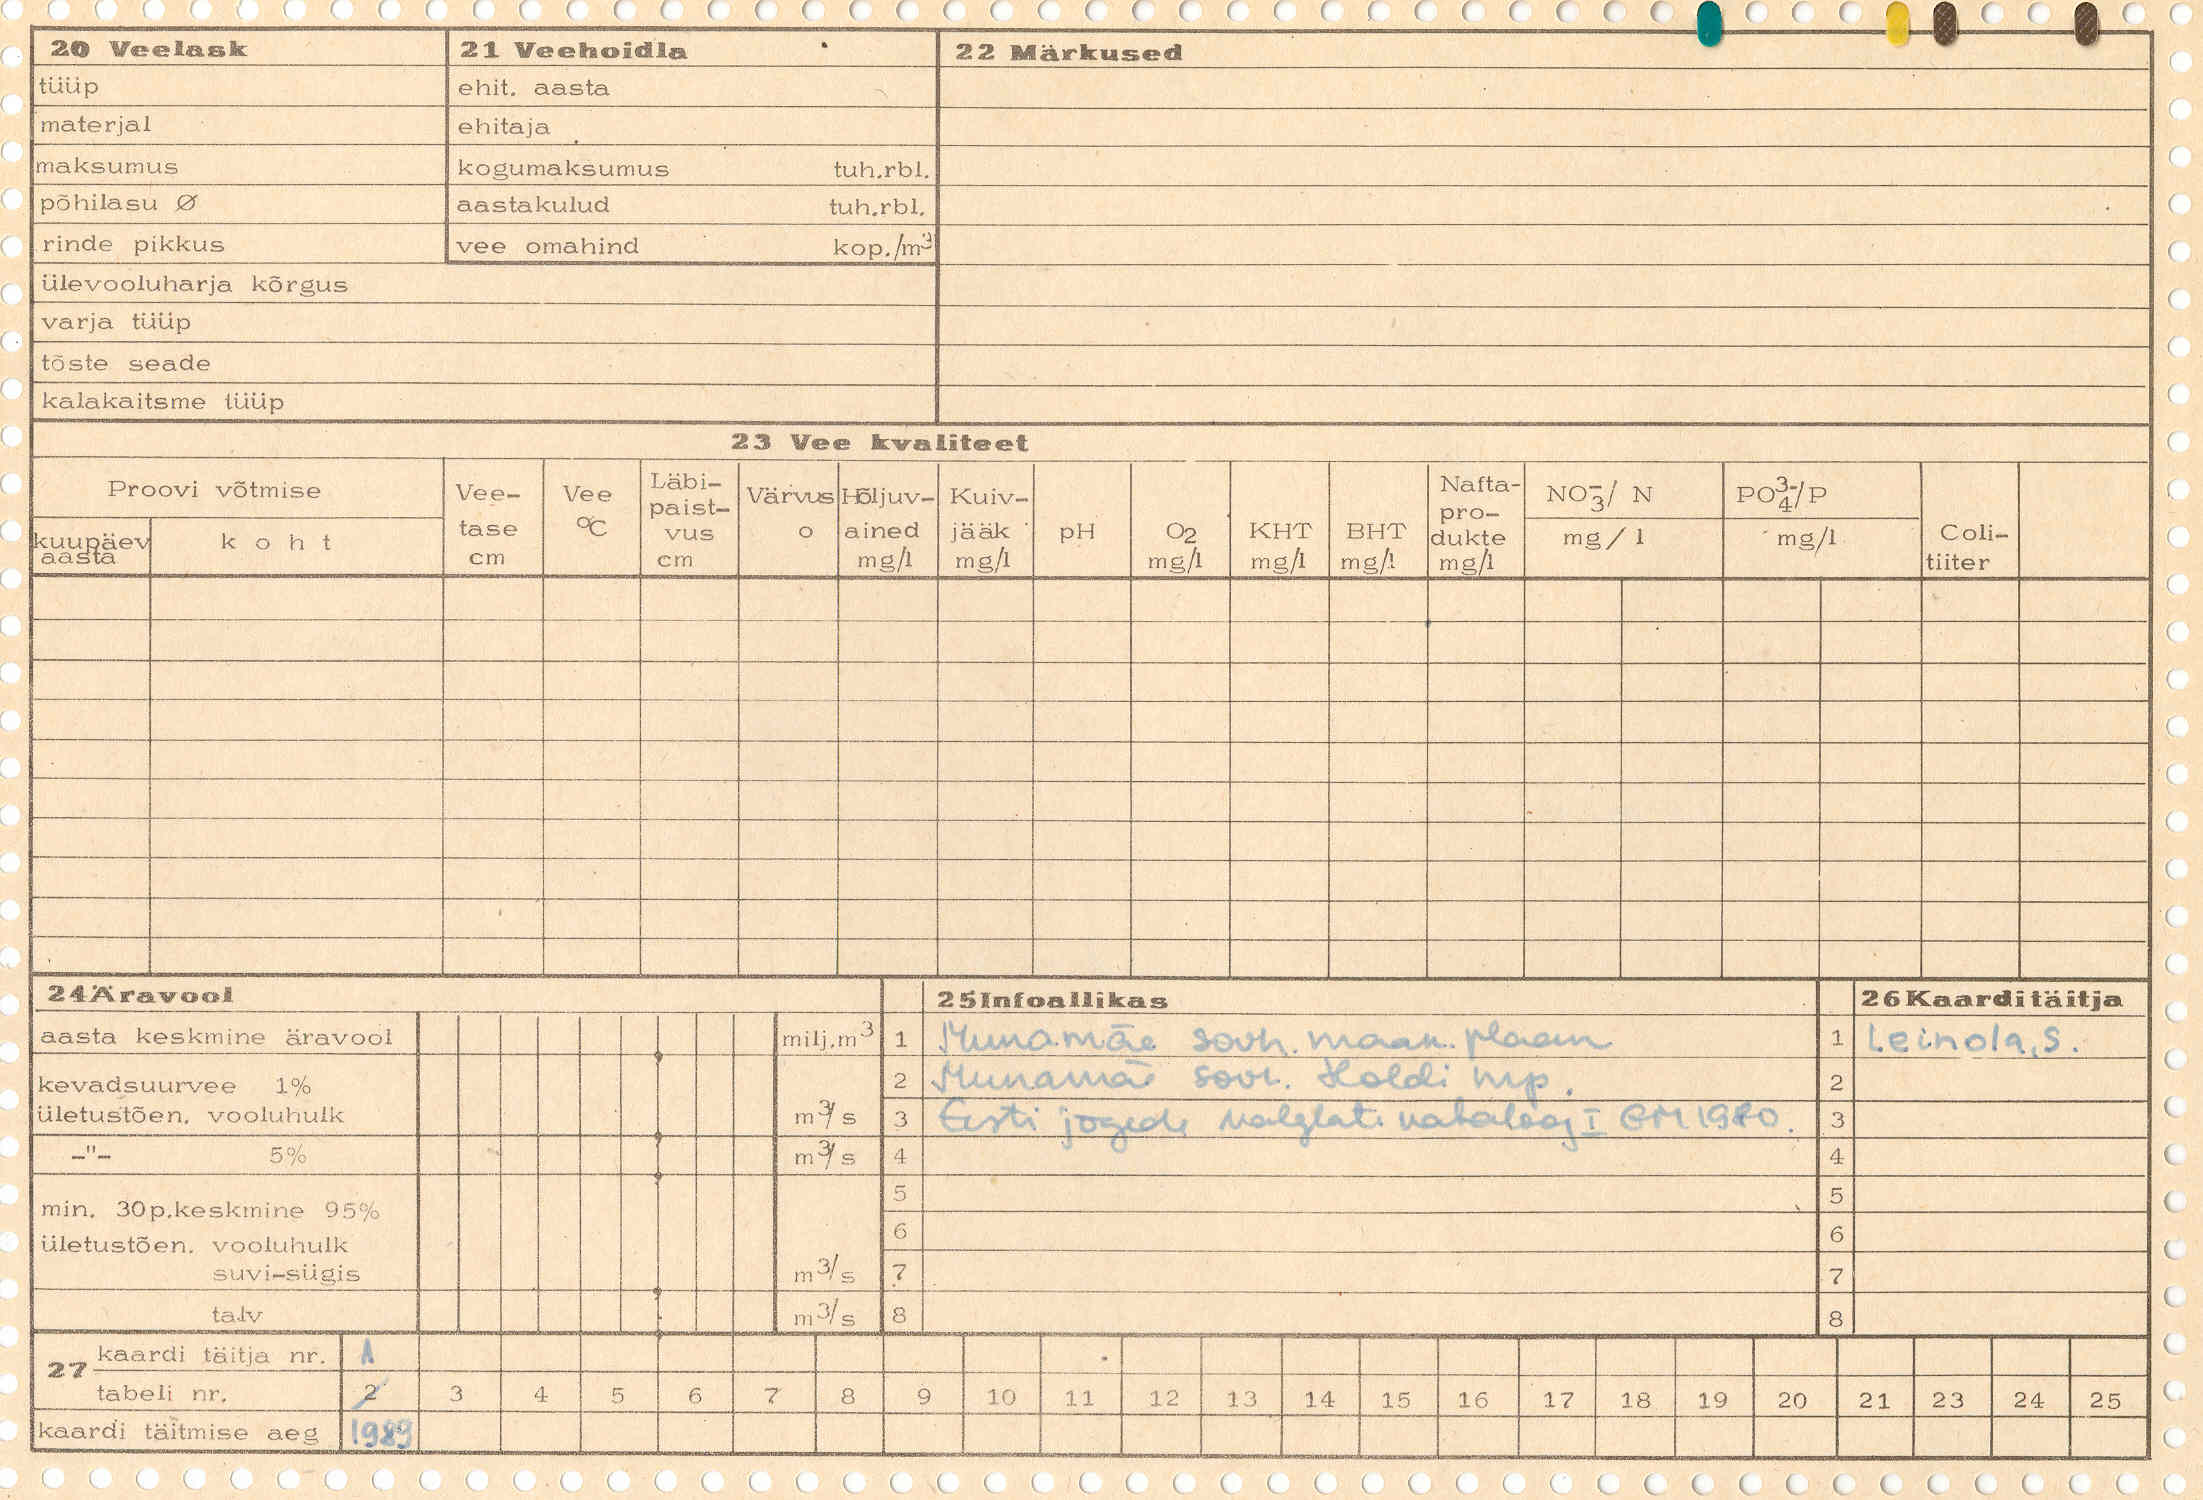 20 Veelask
tüüp
materjal
maksumus
põhilasu Ø
rinde pikkus
ülevooluharja kõrgus
varja tüüp
tõste seade
kalakaitsme tüüp
21 Veehoidla
ehit. aasta
ehitaja
kogumaksumus tuh.rbl.
aastakulud tuh.rbl.
vee omahind kop./m³
22 Märkused
23 Vee kvaliteet
Proovi võtmise
kuupäev aasta
koht
Vee-
tase
cm
Vee
°C
Läbi-
paist-
vus
cm
Värvus
o
Hõljuv-
ained
mg/l
Kuiv-
jääk
mg/l
pH
O2
mg/l
KHT
mg/l
BHT
mg/l
Nafta-
pro-
dukte
mg/l
NO3⁻/ N
mg/l
PO4³⁻/P
mg/l
Coli-
tiiter
24 Äravool
aasta keskmine äravool milj.m³
kevadsuurvee 1%
ületustõen. vooluhulk m³/s
-"- 5% m³/s
min. 30p.keskmine 95%
ületustõen. vooluhulk
suvi-sügis m³/s
talv m³/s
25 Infoallikas
1 Munamäe sovh. maak. plaan
2 Munamäe sovh. Holdi mp.
3 Eesti jõgede valglate kataloog I 1980.
4
5
6
7
8
26 Kaarditäitja
1 Leinola, S.
2
3
4
5
6
7
8
27 kaardi täitja nr. 1
tabeli nr. 2 3 4 5 6 7 8 9 10 11 12 13 14 15 16 17 18 19 20 21 23 24 25
kaardi täitmise aeg 1989